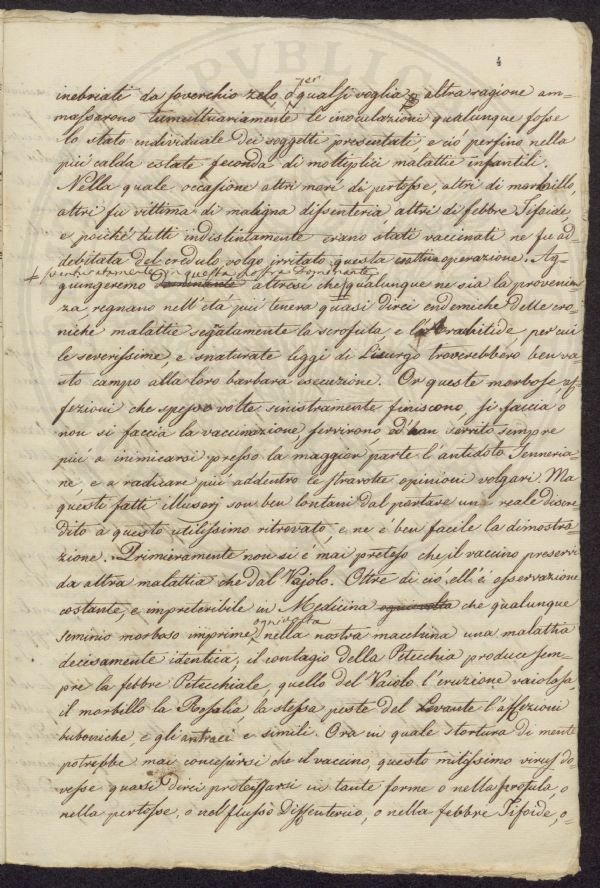 4
inebriati da soverchio zelo, o per qualsi voglia altra ragione am=
massarono tumultuariamente le inoculazioni qualunque fosse
lo stato individuale dei soggetti presentati, e ciò perfino nella
più calda estate feconda di moltiplici malattie infantili.
Nella quale occasione altri morì di pertosse, altri di morbillo,
altri fu vittima di maligna dissenteria altri di febbre Tifoide,
e poiché tutti indistintamente erano stati vaccinati ne fu ad=
debitata del credulo volgo irritato questa operazione. Ag=
in questa nostra Dominante
giungeremo altresì che qualunque ne sia la provenien
za regnano nell'età più tenera quasi direi endemiche delle cro=
niche malattie segnatamente la scrofula, e la rachitide per cui
le severissime, e snaturate leggi di Licurgo troverebbero ben va=
sto campo alla loro barbara esecuzione. Or queste morbose af=
fezioni che spesse volte sinistramente finiscono, si faccia o
non si faccia la vaccinazione servirono ed han servito sempre
più a inimicarsi presso la maggior parte l'antidoto Jenneria=
no, e a radicare più addentro le stravolte opinioni volgari. Ma
questi fatti illusorj son ben lontani dal portare un reale discre=
dito a questo utilissimo ritrovato, e ne è ben facile la dimostra=
zione. Primieramente non si è mai preteso che il vaccino preservi
da altra malattia che dal Vajolo. Oltre di ciò, ell'è osservazione
costante, e impreteribile in Medicina ogni volta che qualunque
ogni volta
seminio morboso imprime nella nostra macchina una malattia
decisamente identica, il contagio della Petecchia produce sem=
pre la febbre Petecchiale, quello del Vaiolo l'eruzione vaiolosa,
il morbillo la Rosalia, la stessa peste del Levante l'affezioni
buboniche, e gli antraci e simili. Ora in quale stortura di mente
potrebbe mai concepirsi che il vaccino, questo mitissimo virus do=
vesse quasi direi proteffarsi in tante forme o nella scrofula, o
nella pertosse, o nel flusso Dissenterico, o nella febbre Tifoide, o=